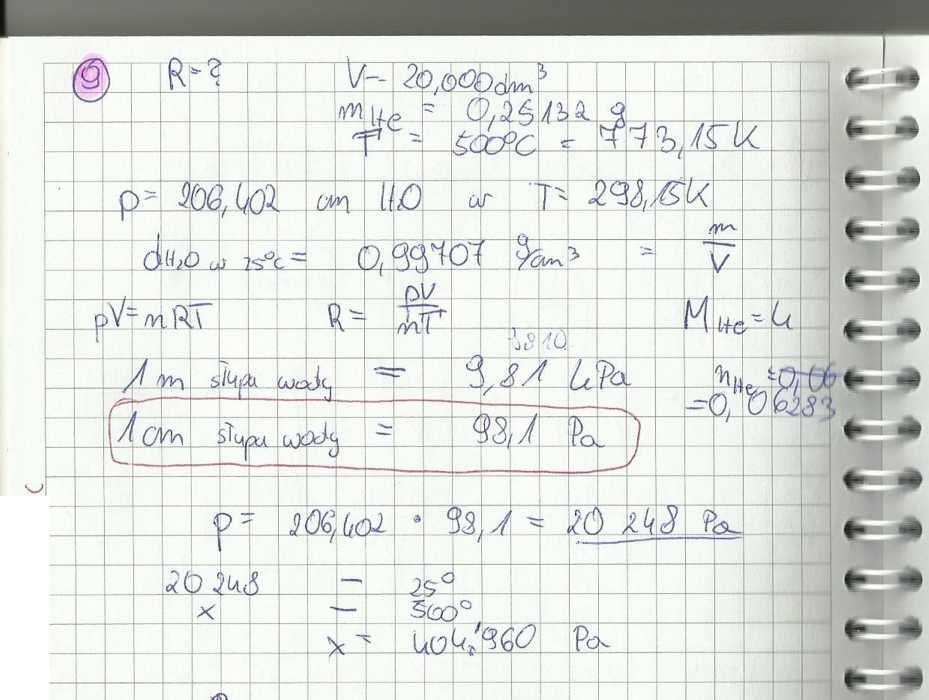 9 R=? V - 20,000dm³
mHe = 0,25132 g
T = 500°C = 773,15K
p= 206,402 cm H2O w T= 298,15K
dH2O w 25°C = 0,99707 g/cm³ = m/V
pV=nRT R= pV/nT MHe=4
9810
1m słupa wody = 9,81 kPa nHe=0,06
=0,06283
1cm słupa wody = 98,1 Pa
p= 206,402 · 98,1 = 20 248 Pa
20 248 — 25°
x — 500°
x= 404,960 Pa